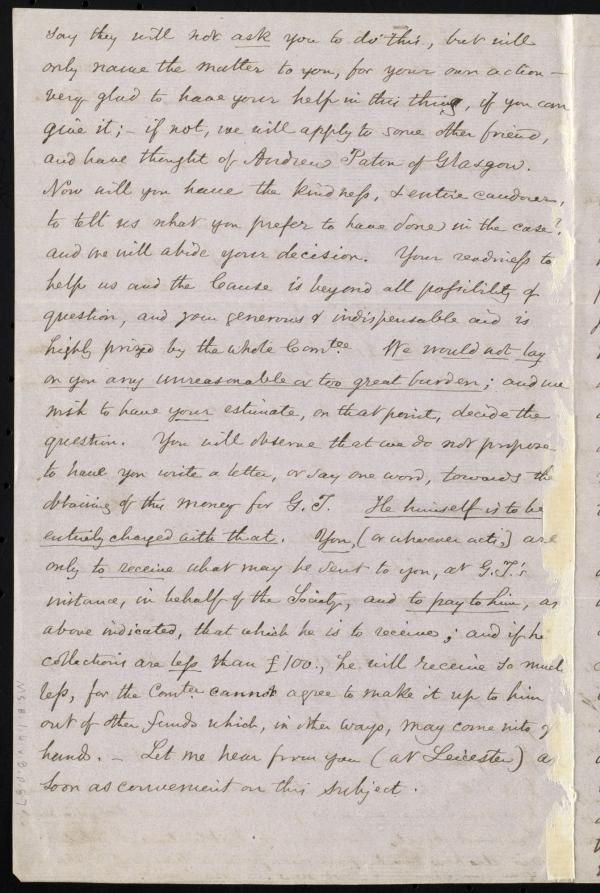 say they will not ask you to do this, but will
only name the matter to you, for your own action –
very glad to have your help in this thing, if you can
give it; – if not, we will apply to some other friend,
and have thought of Andrew Paton of Glasgow.
Now will you have the kindness, & entire candour,
to tell us what you prefer to have done in the case?
and we will abide your decision. Your readiness to
help us and the Cause is beyond all possibility of
question, and your generous & indispensable aid is
highly prized by the whole Comtee. We would not lay
on you any unreasonable or too great burden; and we
wish to have your estimate, on that point, decide the
question. You will observe that we do not propose
to have you write a letter, or say one word, towards the
obtaining of this money for G. T. He himself is to be
entirely charged with that. You, (or whoever acts,) are
only to receive what may be sent to you, at G.T.'s
instance, in behalf of the Society, and to pay to him, as
above indicated, that which he is to receive; and if he
collections are less than £100., he will receive so much
less, for the Comtee cannot agree to make it up to him
out of other funds which, in other ways, may come into
hands. – Let me hear from you (at Leicester) as
soon as convenient on this subject.
MS.B.1.6